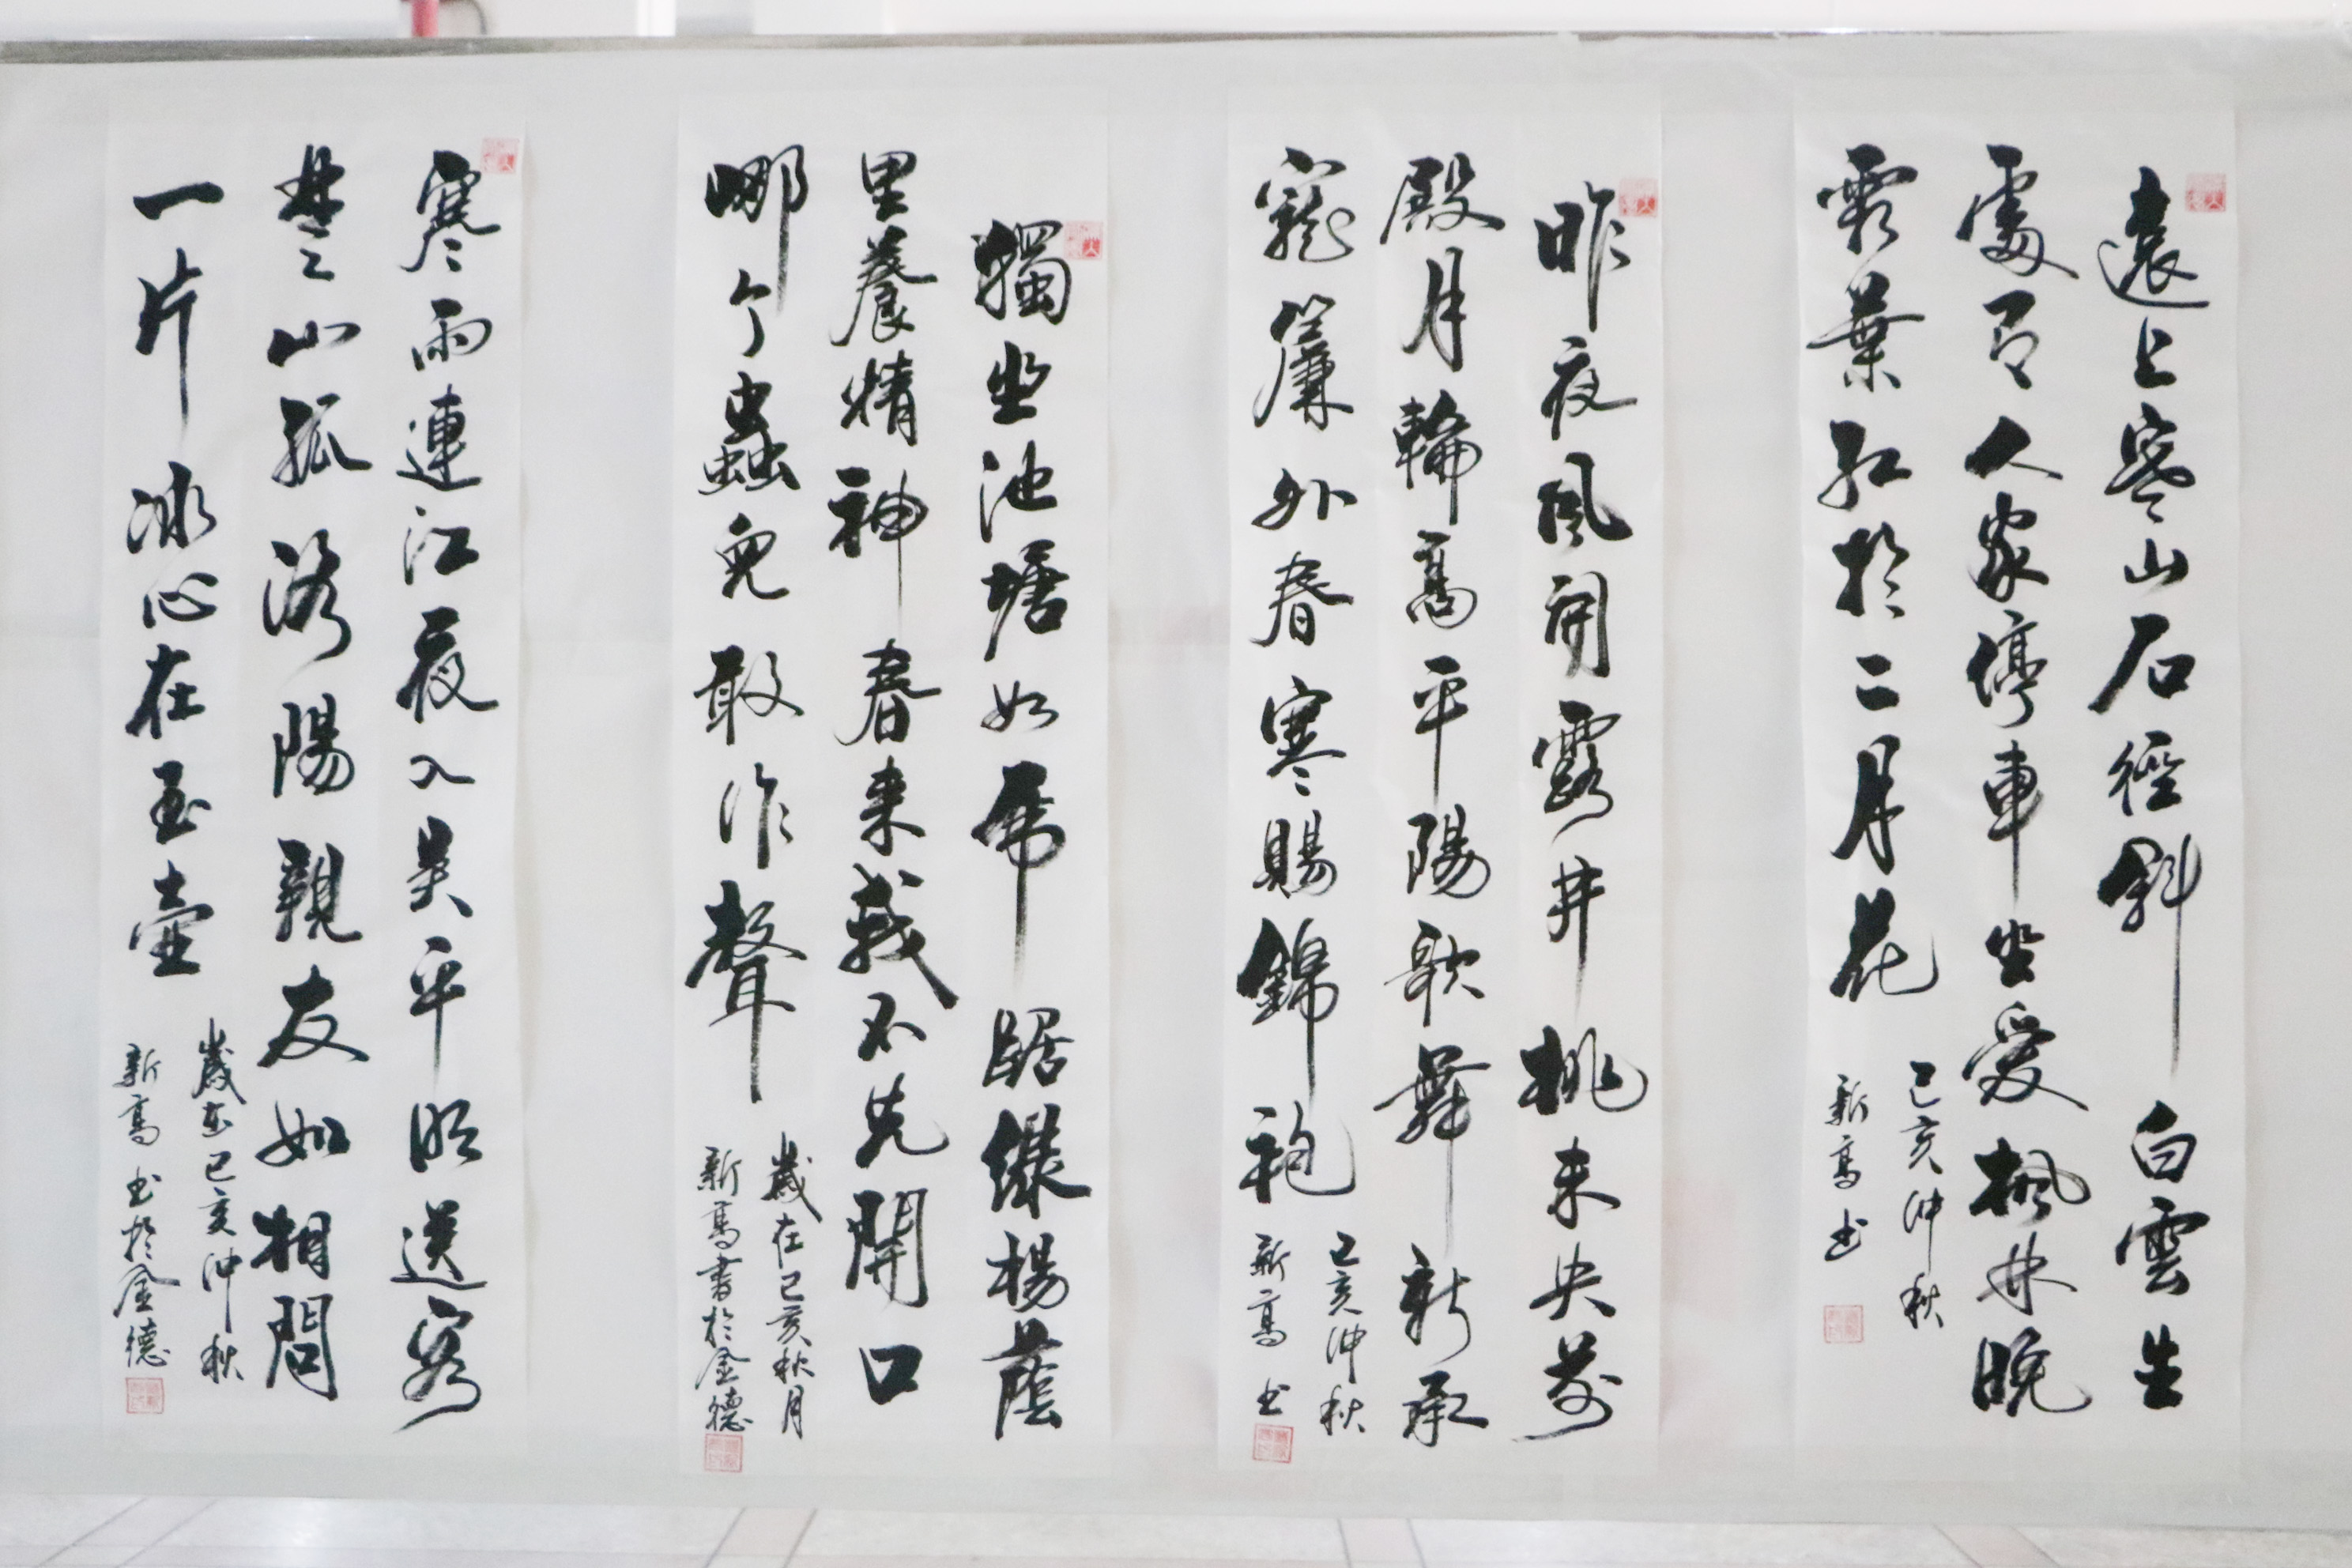 遠上寒山石徑斜白雲生
處有人家停車坐愛楓林晚
霜葉紅於二月花
己亥仲秋
新高书
昨夜風開露井桃未央前
殿月輪高平陽歌舞新承
寵簾外春寒賜錦袍
己亥仲秋
新高书
獨坐池塘如虎踞綠楊蔭
里養精神春来我不先開口
哪个蟲兒敢作聲
歲在己亥秋月
新高書於金德
寒雨連江夜入吴平明送客
楚山孤洛陽親友如相問
一片冰心在玉壺
歲在己亥仲秋
新高书於金德